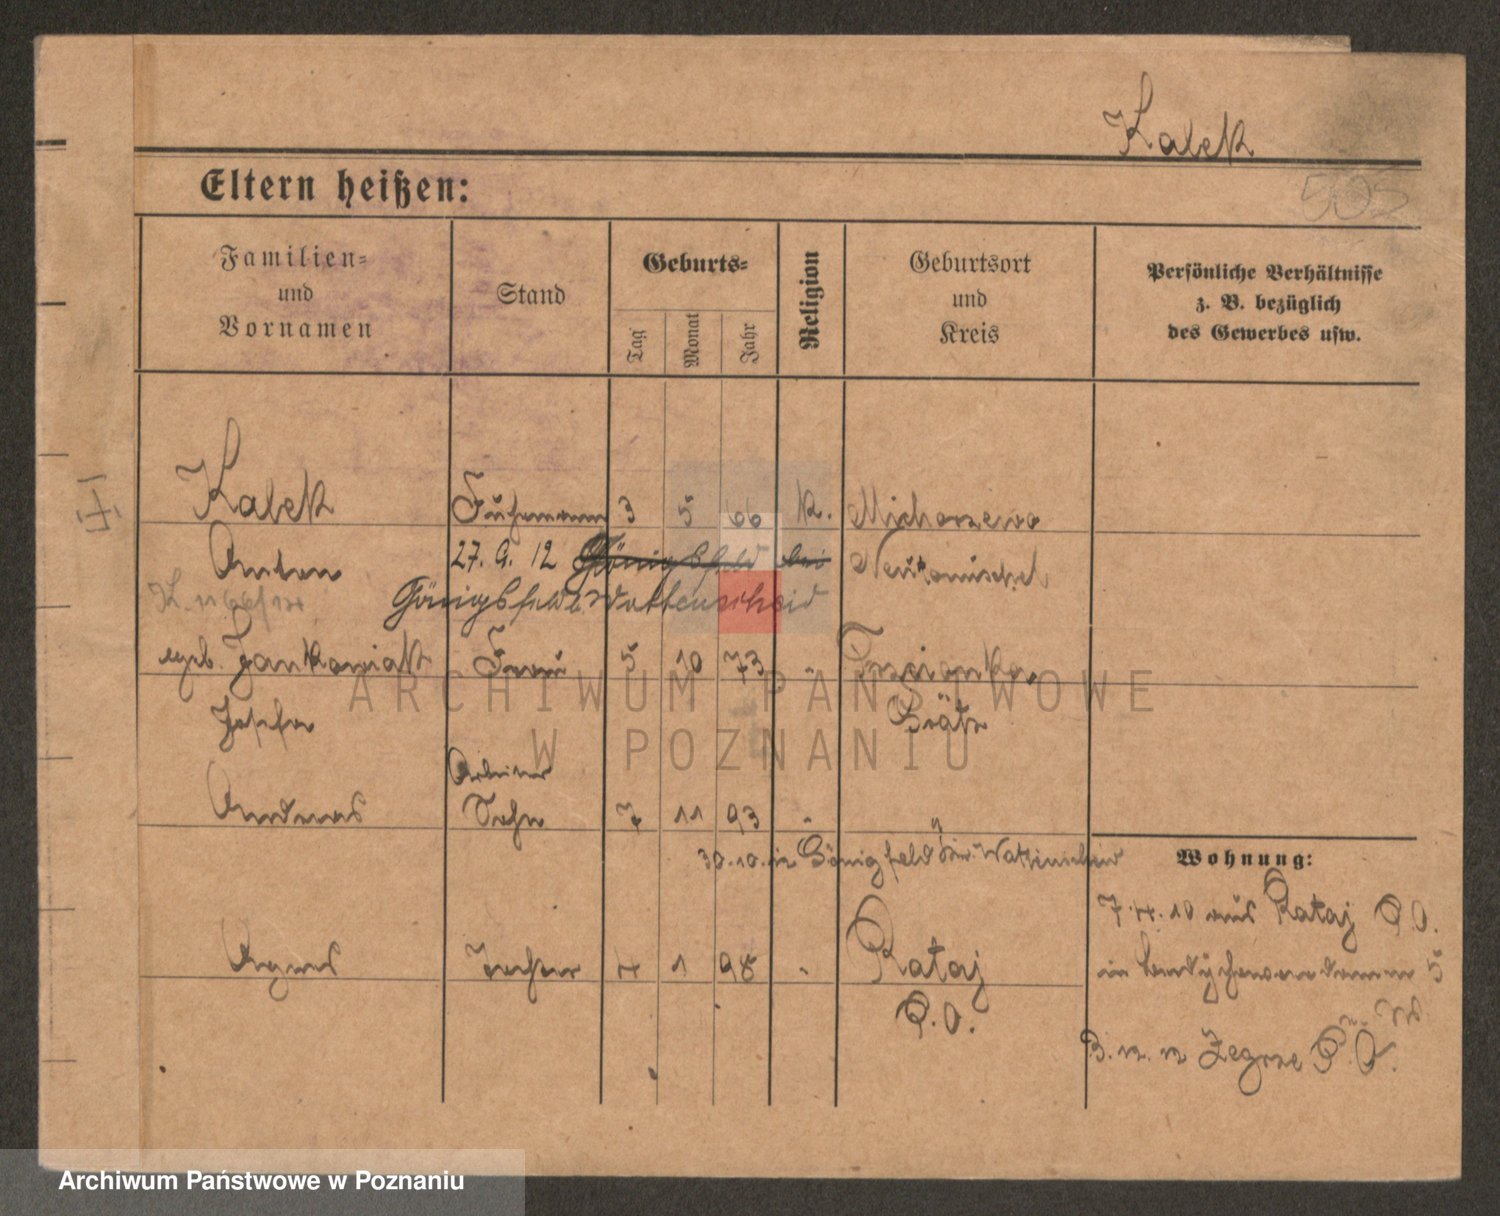 Kalek
502
Eltern heißen:
Familien-
und
Vornamen
Stand
Geburts-
Tag
Monat
Jahr
Religion
Geburtsort
und
Kreis
Persönliche Verhältnisse
z. B. bezüglich
des Gewerbes usw.
Kalek Fuhrmann 3 5 66 K. Michorzewo
Anton 27. 9. 12 Neutomischel
Wattenscheid
geb. Jankowiak Frau 5 10 73 " Trzcionka,
Josefa Grätz
Arbeiter
Andreas Sohn 7 11 93 " "
30.10. in Günnigfeld Wattenscheid
Wohnung:
7.4.10 aus Rataj P.O.
Agnes Tochter 4 1 98 " Rataj
P.O.
5
3.12.12 Zegrze P.O.
ARCHIWUM PAŃSTWOWE
W POZNANIU
Archiwum Państwowe w Poznaniu